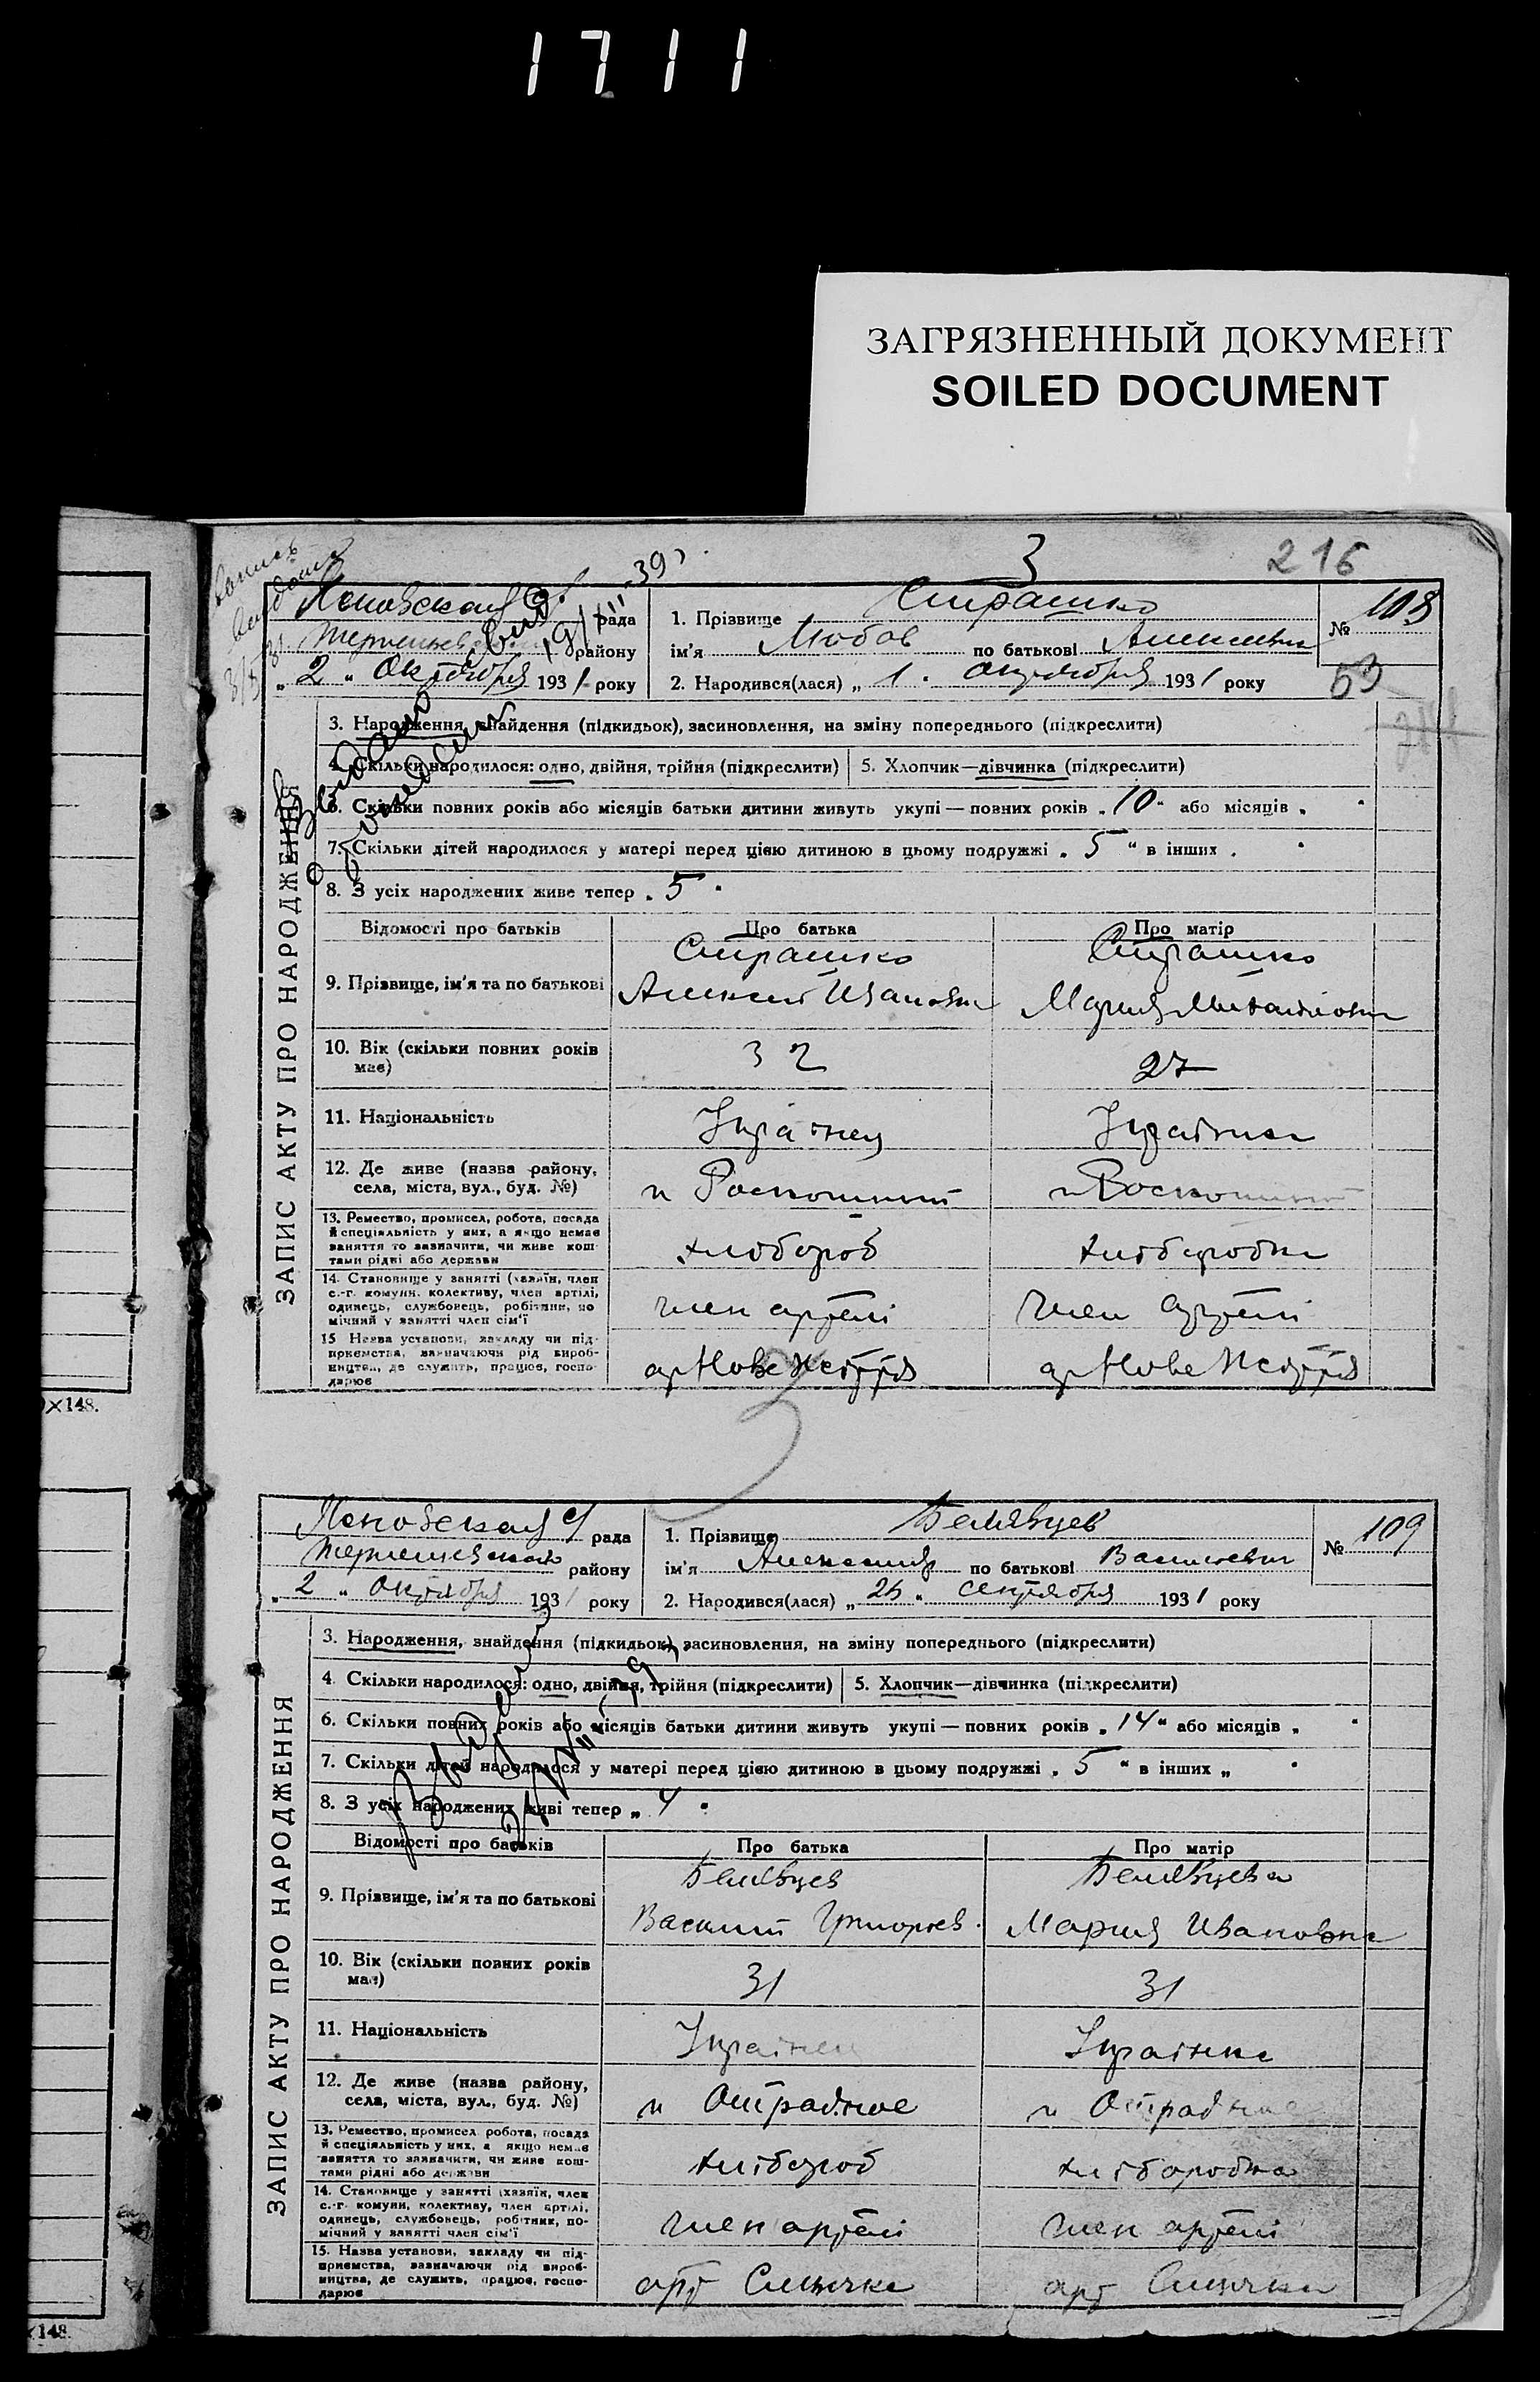 1711
ЗАГРЯЗНЕННЫЙ ДОКУМЕНТ
SOILED DOCUMENT
3
216
рада
району
„ 2 „ Октября 1931 року
1. Прізвище Страшко
ім'я Любов по батькові Алексеевна
2. Народився(лася) „ 1 „ октября 1931 року
№ 108
53
ЗАПИС АКТУ ПРО НАРОДЖЕННЯ
3. Народження, знайдення (підкидьок), засиновлення, на зміну попереднього (підкреслити)
4. Скільки народилося: одно, двійня, трійня (підкреслити)
5. Хлопчик—дівчинка (підкреслити)
6. Скільки повних років або місяців батьки дитини живуть укупі — повних років „ 10 “ або місяців „ “
7. Скільки дітей народилося у матері перед цією дитиною в цьому подружжі „ 5 “ в інших „ “
8. З усіх народжених живе тепер „ 5 “
Відомості про батьків
Про батька
Про матір
9. Прізвище, ім'я та по батькові
Страшко
Алексей Иванович
Страшко
Мария Михайловна
10. Вік (скільки повних років
має)
32
27
11. Національність
Українец
Українка
12. Де живе (назва району,
села, міста, вул., буд. №)
п Роскошний
п Роскошний
13. Ремество, промисел, робота, посада
й спеціяльність у них, а якщо немає
заняття то зазначити, чи живе кош-
тами рідні або держави
хлібороб
хлібородка
14. Становище у занятті (хазяїн, член
с.-г. комуни, колективу, член артілі,
одинець, службовець, робітник, по
мічний у занятті член сім'ї
член артелі
член артелі
15 Назва установи, закладу чи під-
приємства, зазначаючи рід вироб-
ництва, де служить, працює, госпо-
дарює
×148.
рада
району
„ 2 „ Октября 1931 року
1. Прізвище Белявцев
ім'я Александр по батькові Васильевич
2. Народився(лася) „ 25 „ сентября 1931 року
№ 109
ЗАПИС АКТУ ПРО НАРОДЖЕННЯ
3. Народження, знайдення (підкидьок), засиновлення, на зміну попереднього (підкреслити)
4 Скільки народилося: одно, двійня, трійня (підкреслити)
5. Хлопчик—дівчинка (підкреслити)
6. Скільки повних років або місяців батьки дитини живуть укупі — повних років „ 14 “ або місяців „ “
7. Скільки дітей народилося у матері перед цією дитиною в цьому подружжі „ 5 “ в інших „ “
8. З усіх народжених живі тепер „ 4 “
Відомості про батьків
Про батька
Про матір
9. Прізвище, ім'я та по батькові
Белявцев
Василий Григорьев.
Белявцева
Мария Ивановна
10. Вік (скільки повних років
має)
31
31
11. Національність
Українец
Українка
12. Де живе (назва району,
села, міста, вул., буд. №)
п Отрадное
п Отрадное
13. Ремество, промисел робота, посада
й спеціяльність у них, а якщо немає
заняття то зазначити, чи живе кош-
тами рідні або держави
хлібороб
хліборобка
14. Становище у занятті (хазяїн, член
с.-г. комуни, колективу, член артілі,
одинець, службовець, робітник, по-
мічний у занятті член сім'ї
член артелі
член артелі
15. Назва установи, закладу чи під-
приємства, зазначаючи рід вироб-
ництва, де служить, працює, госпо-
дарює
×148.